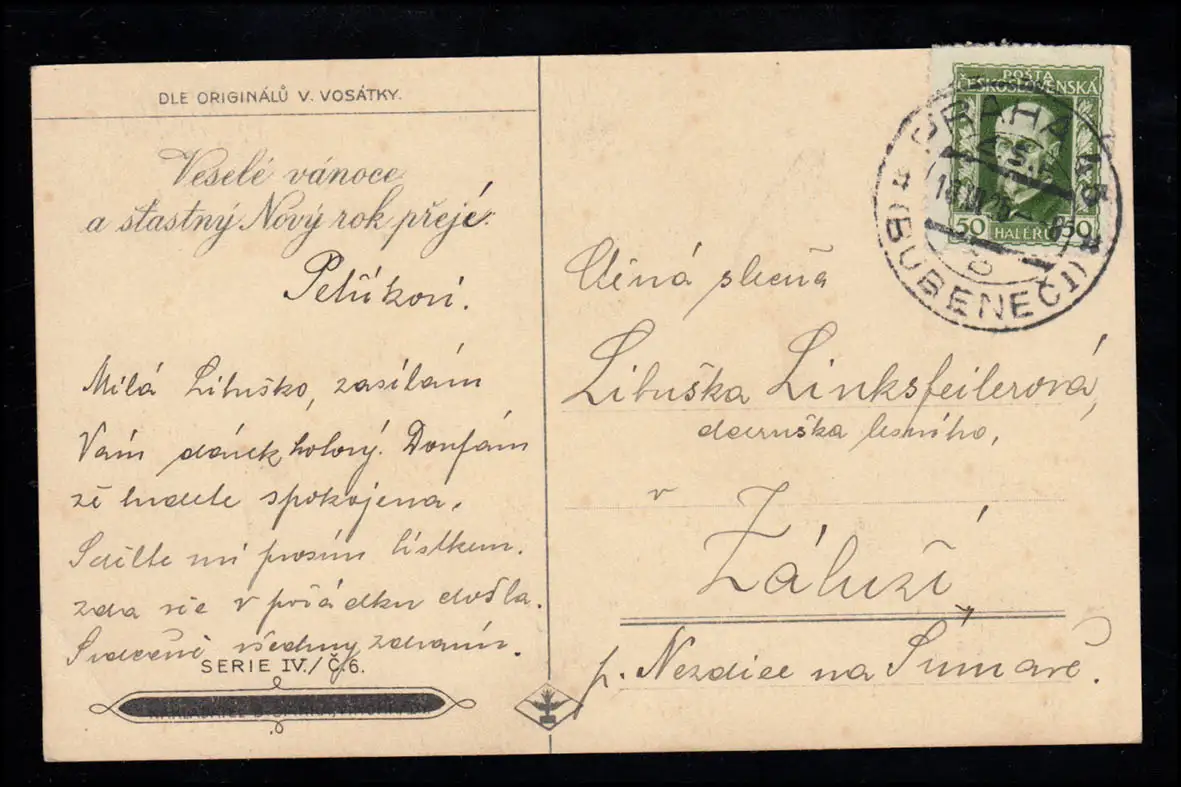 DLE ORIGINÁLŮ V. VOSÁTKY.
Veselé vánoce
a šťastný Nový rok přejé
Milá Libuško, zasílám
Vám dárek hotový. Doufám
že budete spokojena.
Sdělte mi prosím lístkem.
zda vše v pořádku došla.
Srdečně všechny zdravím.
SERIE IV./Č.6.
POŠTA
ČESKOSLOVENSKÁ
50 HALÉŘŮ 50
PRAHA
ČSR
(BUBENEČ)
slečna
Libuška Linksfeilerová,
dceruška lesního,
v
Záluží
p. Nezdice na Šumavě.